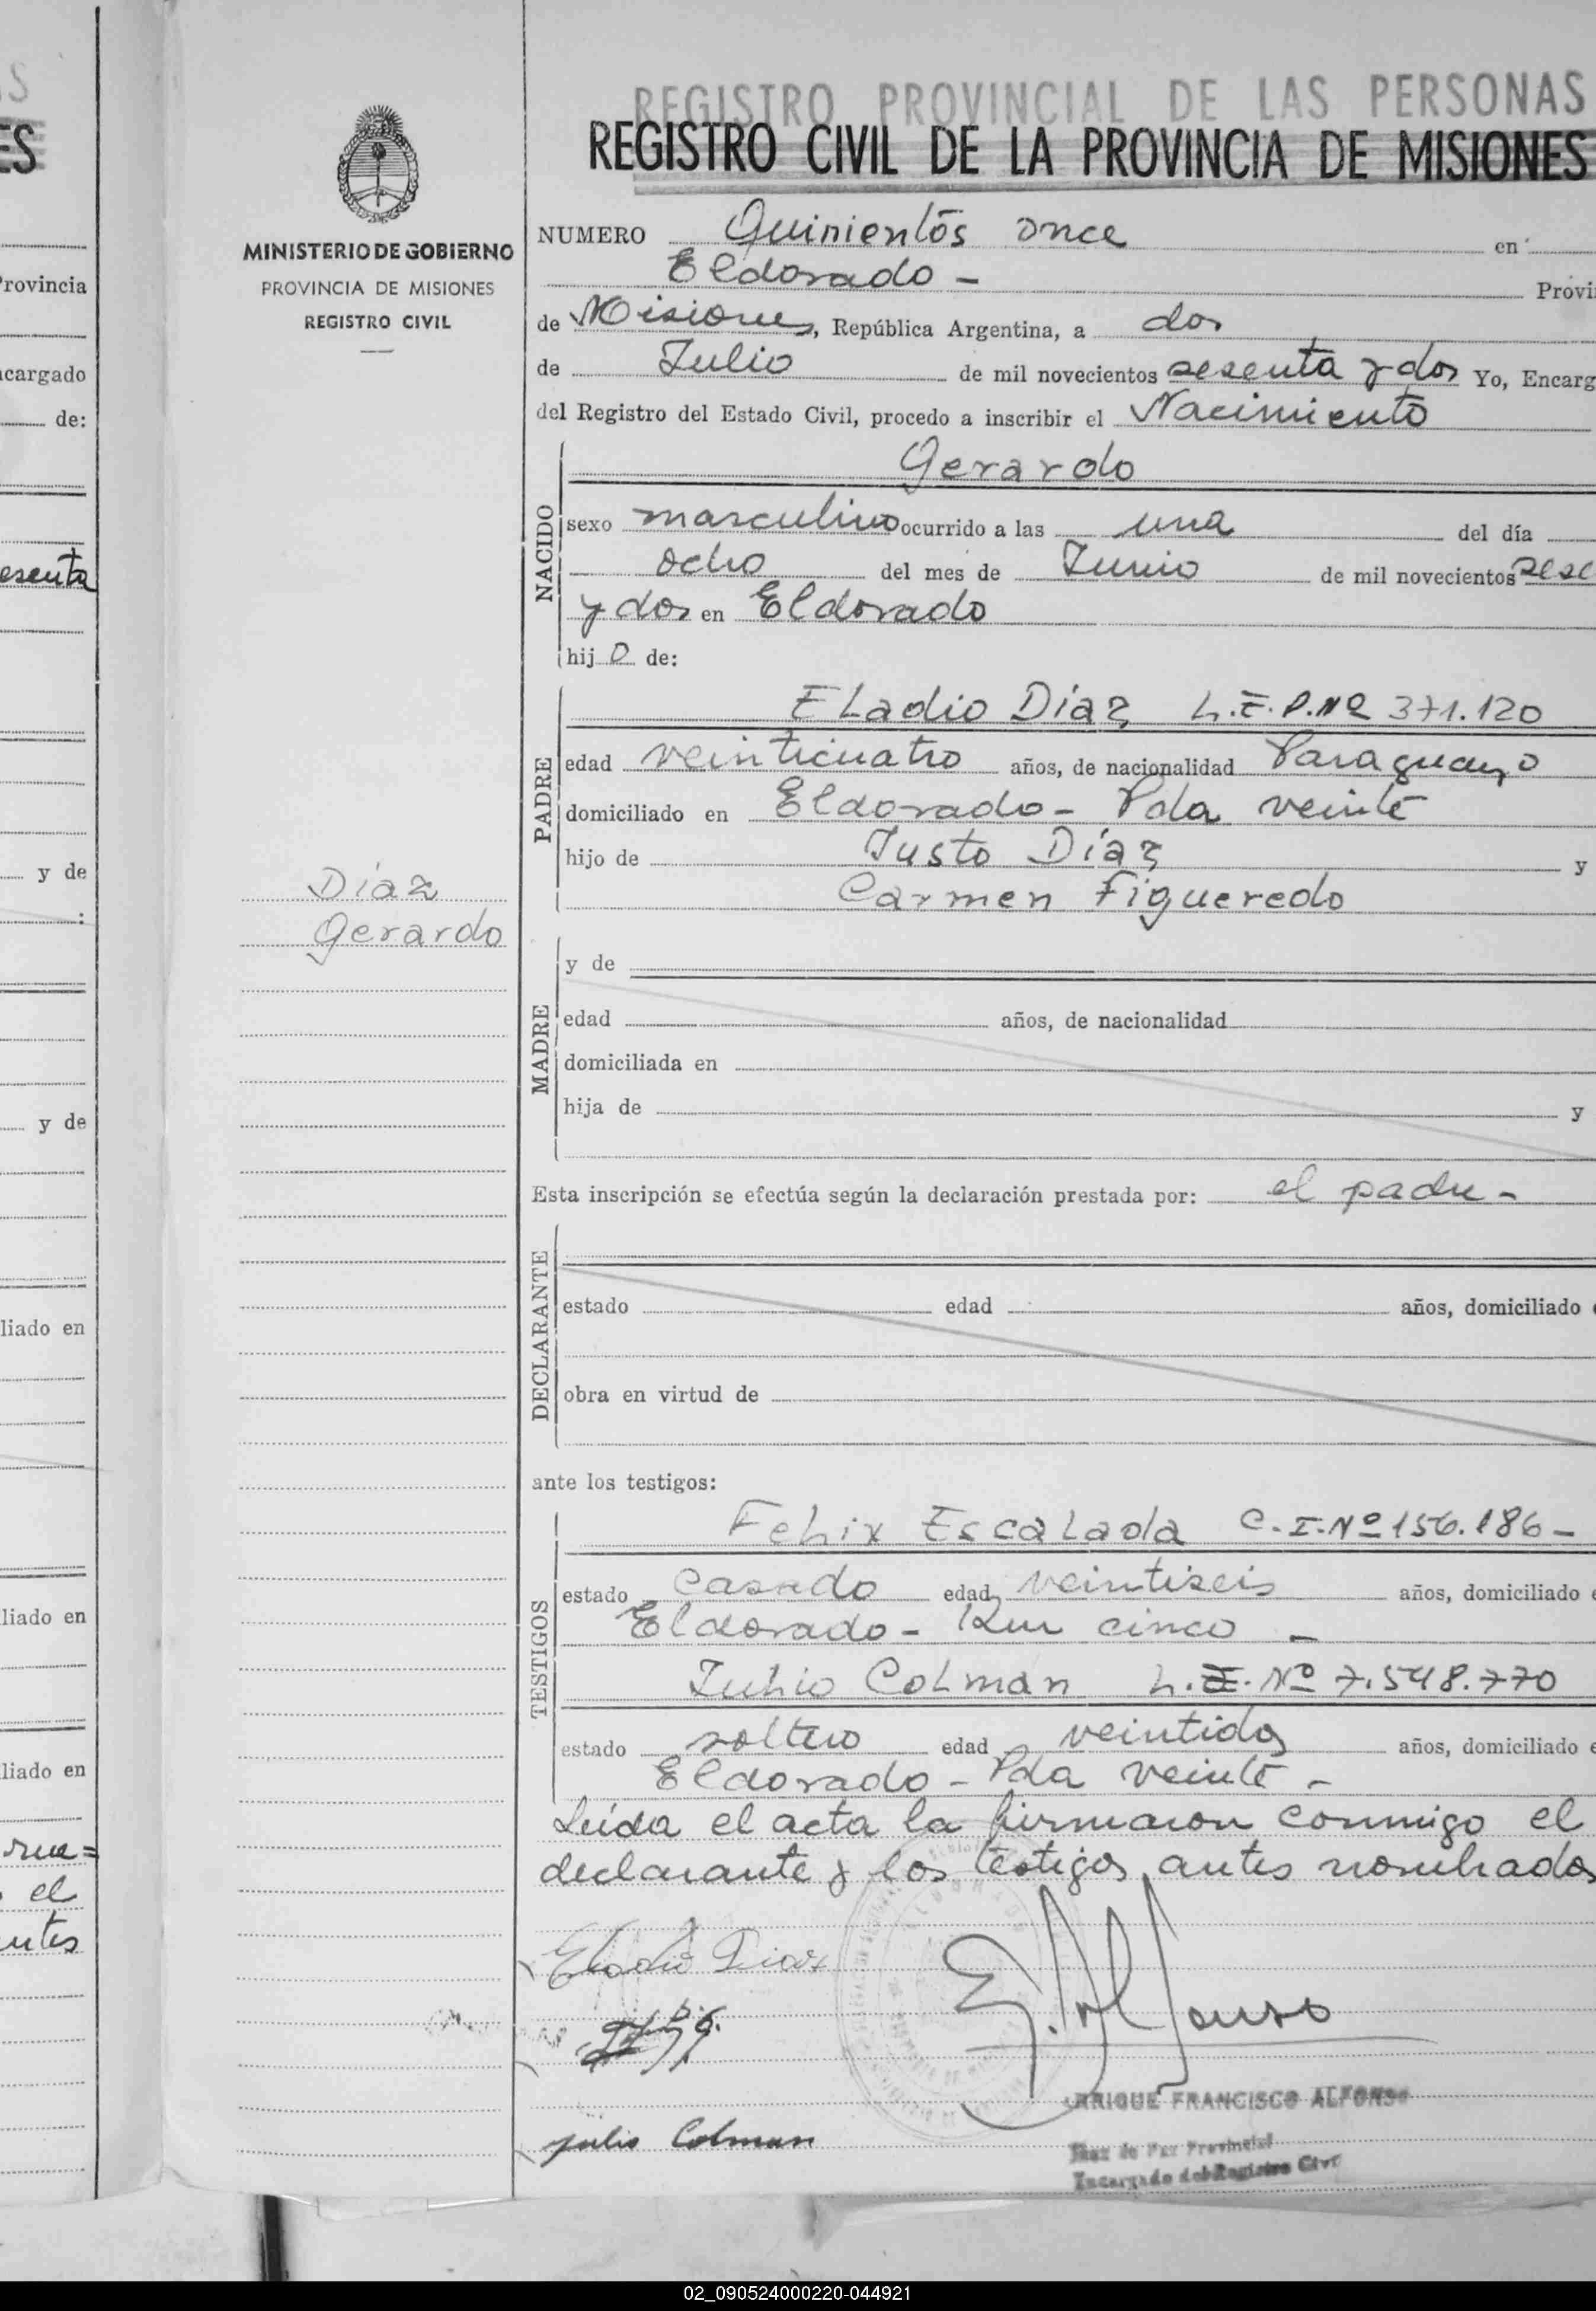 S
ES
Provincia
ncargado
de:
esenta
y de
:
y de
liado en
liado en
liado en
el
antes
MINISTERIO DE GOBIERNO
PROVINCIA DE MISIONES
REGISTRO CIVIL
Díaz
Gerardo
REGISTRO PROVINCIAL DE LAS PERSONAS
REGISTRO CIVIL DE LA PROVINCIA DE MISIONES
NUMERO Quinientos once en
Eldorado - Provi
de Misiones, República Argentina, a dos
de Julio de mil novecientos sesenta y dos Yo, Encarg
del Registro del Estado Civil, procedo a inscribir el Nacimiento
NACIDO
Gerardo
sexo masculino ocurrido a las una del día
ocho del mes de Junio de mil novecientos sese
y dos en Eldorado
hijo de:
PADRE
Eladio Díaz L.E.P.Nº 371.120
edad veinticuatro años, de nacionalidad Paraguayo
domiciliado en Eldorado - Pda veinte
hijo de Justo Díaz y
Carmen Figueredo
MADRE
y de
edad años, de nacionalidad
domiciliada en
hija de y
Esta inscripción se efectúa según la declaración prestada por: el padre -
DECLARANTE
estado edad años, domiciliado e
obra en virtud de
ante los testigos:
TESTIGOS
Felix Escalada C.I.Nº 156.186 -
estado casado edad veintiseis años, domiciliado e
Eldorado - Km cinco -
Julio Colman L.E.Nº 7.548.770
estado soltero edad veintidos años, domiciliado e
Eldorado - Pda veinte -
Leída el acta la firmaron conmigo el
declarante y los testigos antes nombrados
Eladio Diaz
E. Alfonso
ENRIQUE FRANCISCO ALFONSO
Julio Colman
Juez de Paz Provincial
Encargado del Registro Civil
02_090524000220-044921